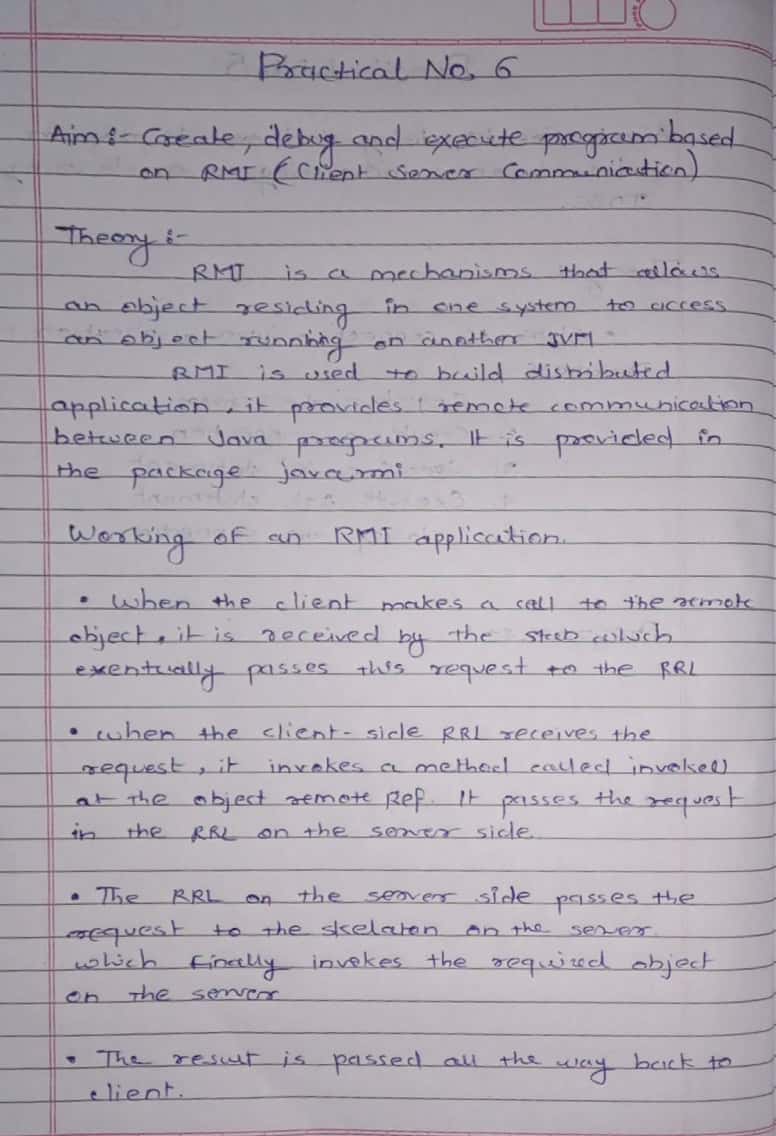 Practical No. 6
Aim :- Create, debug and execute program based
on RMI (Client Server Communication)
Theory :-
RMI is a mechanisms that allows
an object residing in one system to access
an object running on another JVM
RMI is used to build distributed
application, it provides remote communication
between Java programs. It is provided in
the package java.rmi
Working of an RMI application.
• When the client makes a call to the remote
object, it is received by the stub which
exentually passes this request to the RRL
• when the client-side RRL receives the
request, it invokes a method called invoke()
at the object remote Ref. It passes the request
in the RRL on the server side.
• The RRL on the server side passes the
request to the skelaton on the server.
which finally invokes the required object
on the server
• The result is passed all the way back to
client.